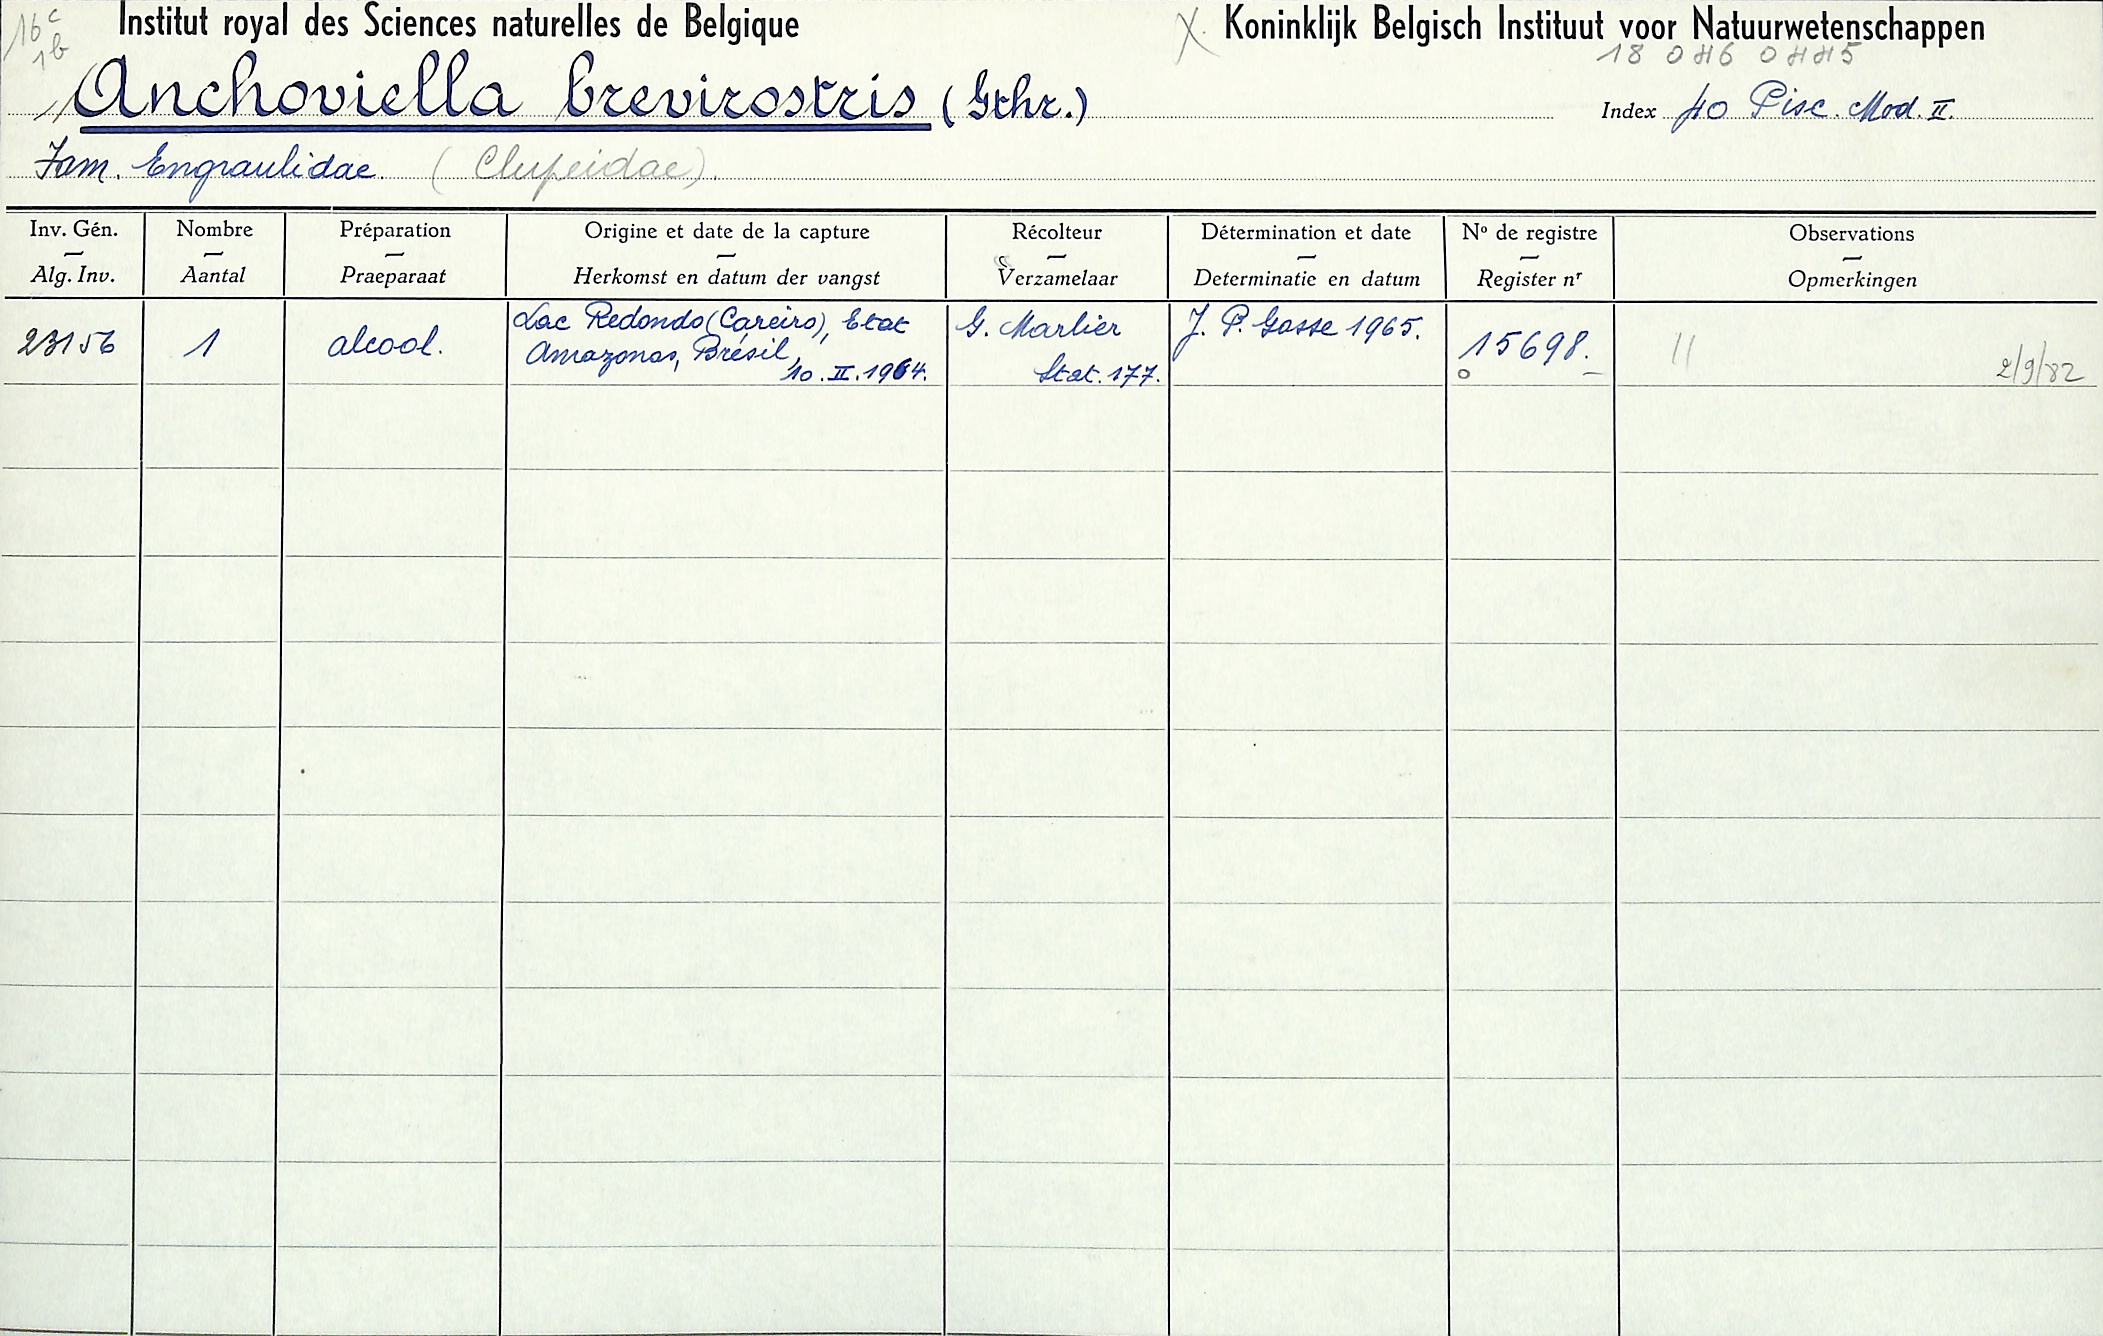 16 c
1b
Institut royal des Sciences naturelles de Belgique
X. Koninklijk Belgisch Instituut voor Natuurwetenschappen
18 046 0445
// Anchoviella brevirostris (Gthr.)
Index 40 Pisc. Mod. II.
Fam. Engraulidae. (Clupeidae).
Inv. Gén. — Alg. Inv.
Nombre — Aantal
Préparation — Praeparaat
Origine et date de la capture — Herkomst en datum der vangst
Récolteur — Verzamelaar
Détermination et date — Determinatie en datum
Nº de registre — Register nr
Observations — Opmerkingen
23156
1
alcool.
Lac Redondo (Careiro), Etat
Amazonas, Brésil,
10.II.1964.
G. Marlier
Stat. 177.
J. P. Gosse 1965.
15698.
//
2/9/82